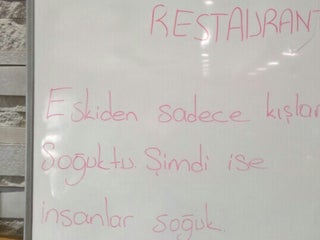 RESTAURANT
Eskiden sadece kışlar
Soğuktu Şimdi ise
insanlar soğuk.